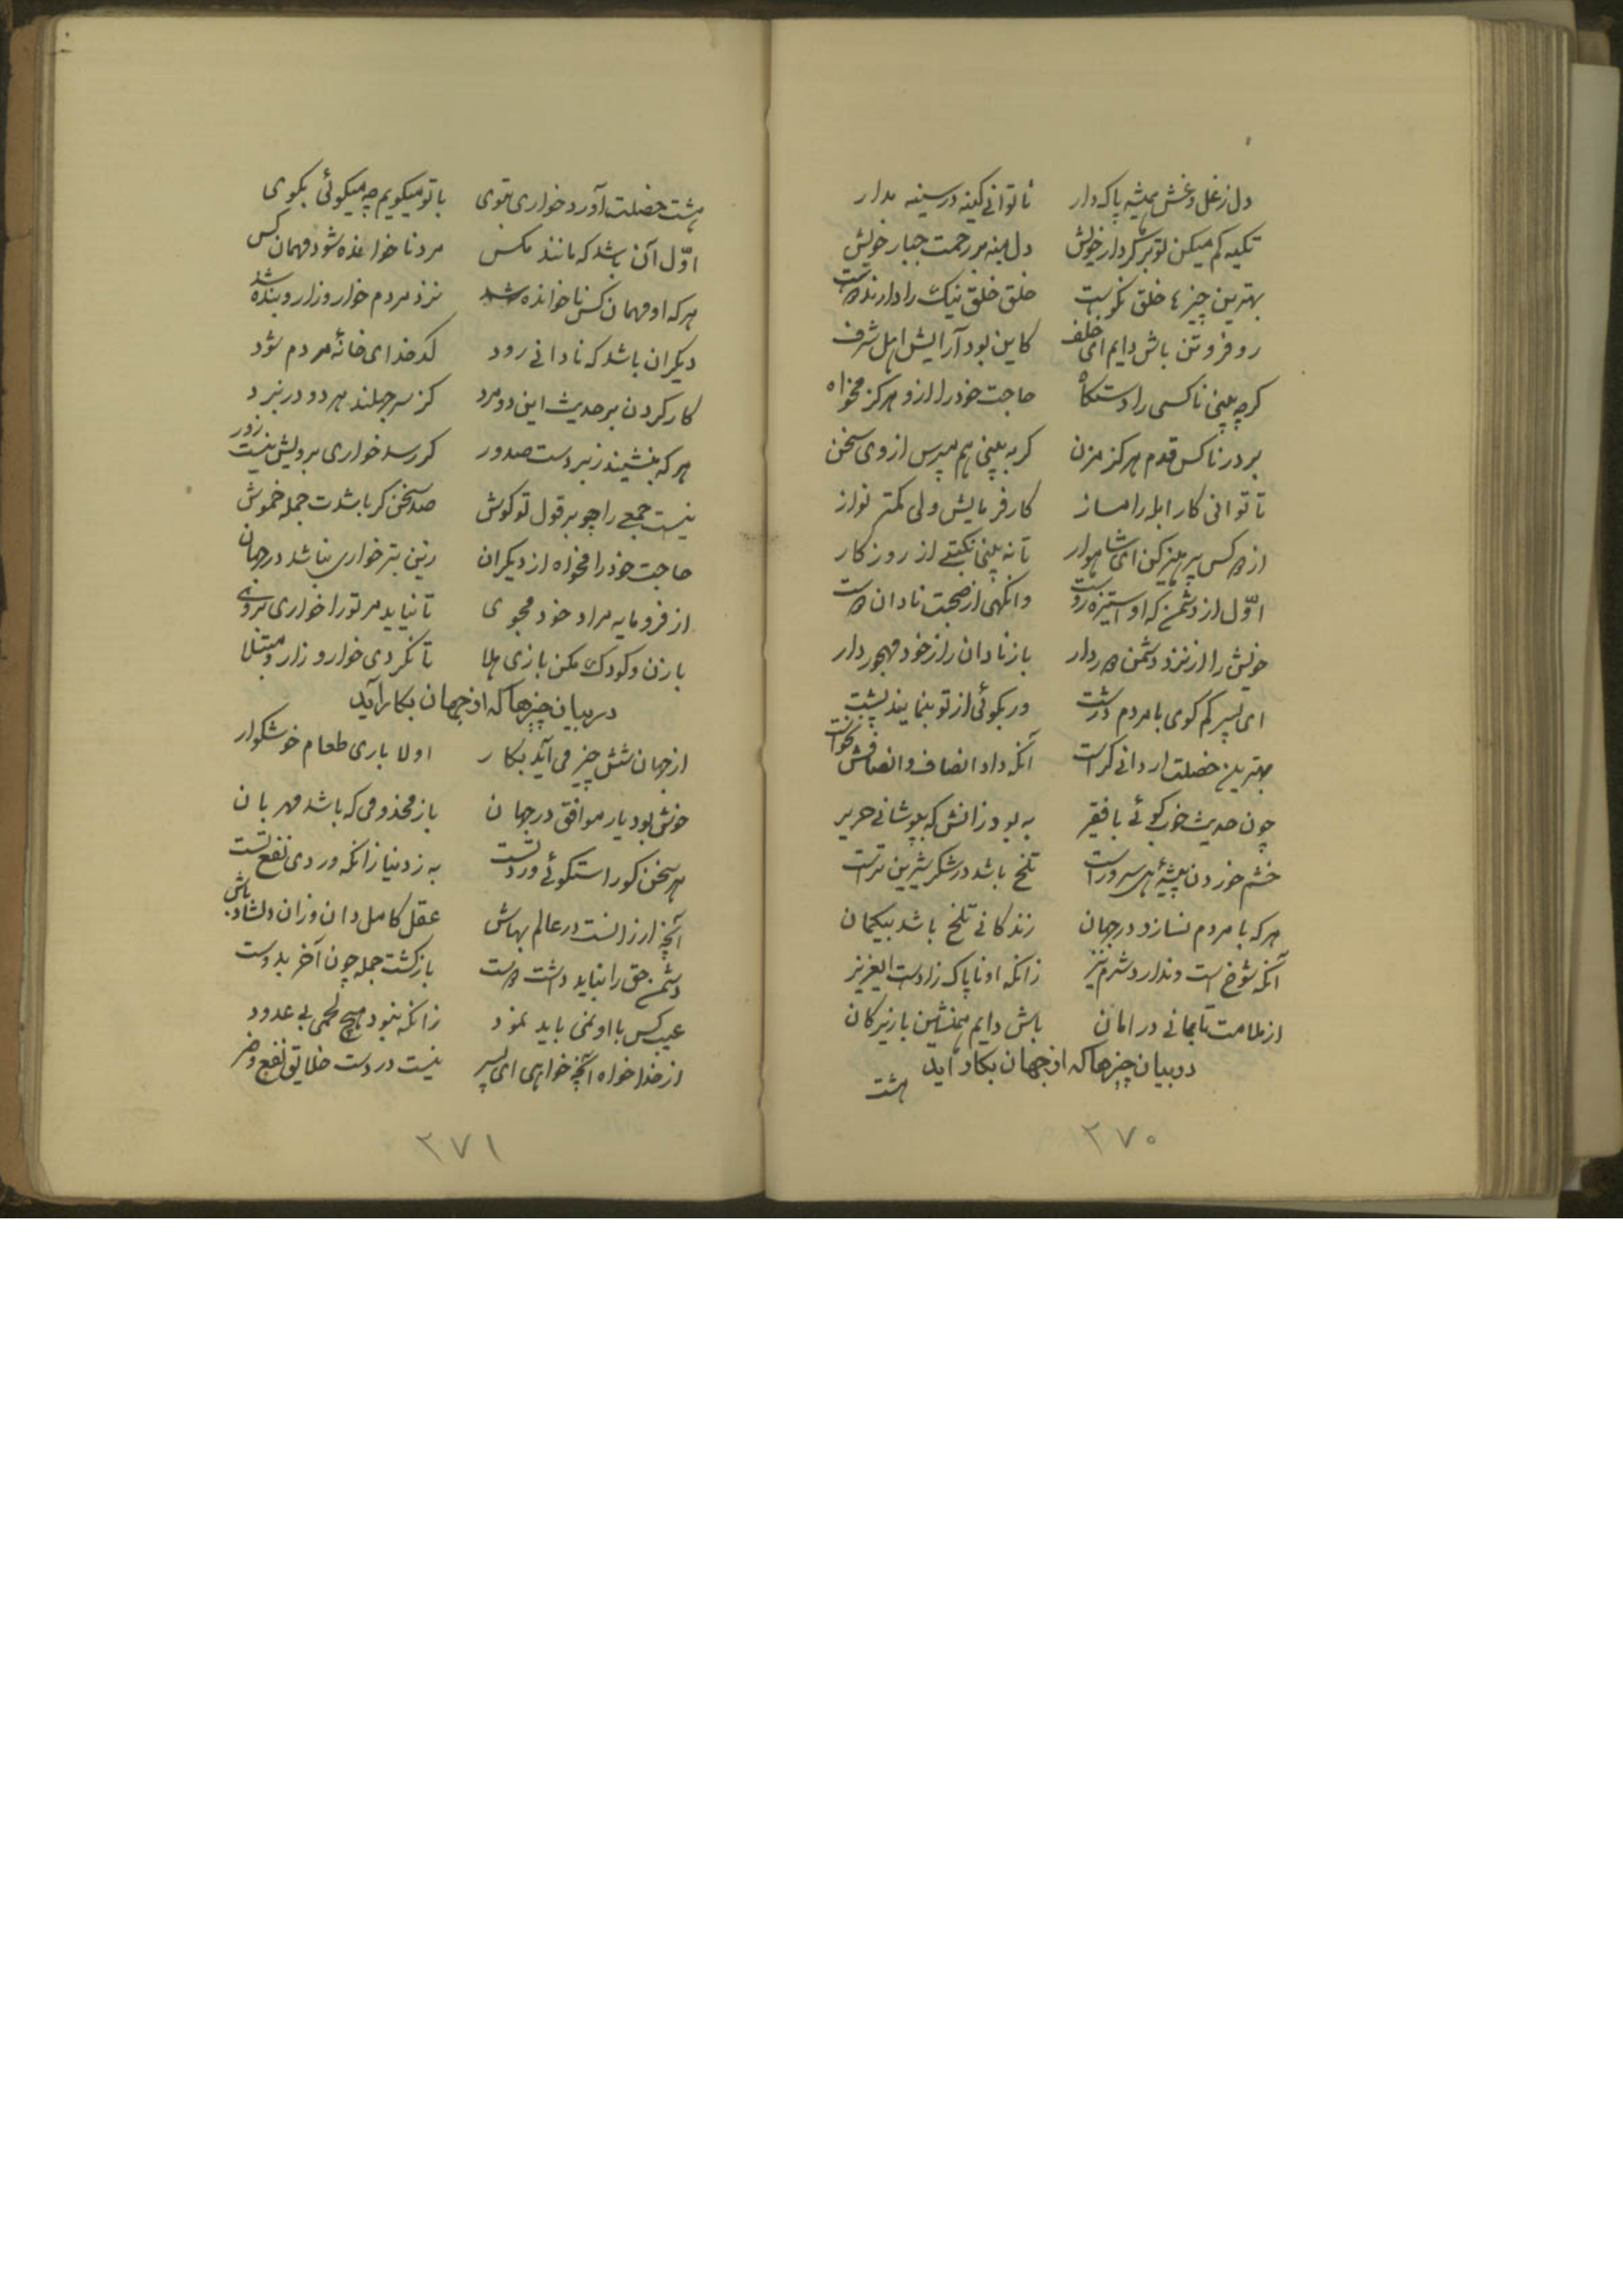 دل ز غل و غش همیشه پاک دار تا توانی کینه در سینه مدار
تکیه کم میکن تو بر کردار خویش دل بنه بر رحمت جبار خویش
بهترین چیزها خلق نکوست خلق خلق نیک را دارند دوست
رو فروتن باش دایم ای خلف کاین بود آرایش اهل شرف
کرچه بینی ناکسی را دستکاه حاجت خود را ازو هرکز مخواه
بر در ناکس قدم هرکز مزن کر به بینی هم مپرس از وی سخن
تا توانی کار ابله را مساز کار فرمایش ولی کمتر نواز
از دو کس پرهیز کن ای هوشیار تا نه بینی نکبتی از روزکار
اوّل از دشمن که او استیزه روست وانکهی از صحبت نادان دوست
خویش را از نزد دشمن دور دار باز نادان را ز خود مهجور دار
ای پسر کم کوی با مردم درشت ور بکوئی از تو بنمایند پشت
بهترین خصلت ار دانی کراست آنکه داد انصاف و انصافش نخواست
چون حدیث خوب کوئی با فقیر به بود زانش که پوشانی حریر
خشم خوردن پیشهٔ هر سرور است تلخ باشد در شکر شیرین تر است
هر که با مردم نسازد در جهان زندکانی تلخ باشد بیکمان
آنکه شوخ است و ندارد شرم نیز زانکه او ناپاک زاد است ایعزیز
از ملامت تا بمانی در امان باش دایم همنشین با زیرکان
در بیان چیزها که از جهان بکار آید
هشت
۲۷۰
هشت خصلت آورد خواری بقوی با تو میکویم چه میکوئی بکوی
اوّل آن باشد که مانند مکس مرد ناخوانده شود مهمان کس
هر که او مهمان کس ناخوانده شد نزد مردم خوار و زار و بنده شد
دیکر آن باشد که نادانی رود کدخدای خانهٔ مردم شود
کار کردن بر حدیث این دو مرد کز سر جهلند هر دو در نبرد
هر که بنشیند زبردست صدور کر رسد خواری برویش نیست زور
نیست جمعی را چو بر قول تو کوش صد سخن کر باشدت جمله خموش
حاجت خود را مخواه از دیکران زین بتر خواری نباشد در جهان
از فرومایه مراد خود مجوی تا نیاید مر ترا خواری بروی
با زن و کودک مکن بازی هلا تا نکردی خوار و زار و مبتلا
در بیان چیزها که از جهان بکار آید
از جهان شش چیز می آید بکار اولا باری طعام خوشکوار
خوش بود یار موافق در جهان باز مخدومی که باشد مهربان
هر سخن کو راست کوئی و درست به ز دنیا زانکه در وی نفع تست
آنچه ارزانست در عالم بهاش عقل کامل دان وزان دلشاد باش
دشمن حق را نباید داشت دوست بازکشت جمله چون آخر بدوست
عیب کس با او نمی باید نمود زانکه نبود هیچ لحمی بی غدود
از خدا خواه آنچه خواهی ای پسر نیست در دست خلایق نفع و ضر
۲۷۱